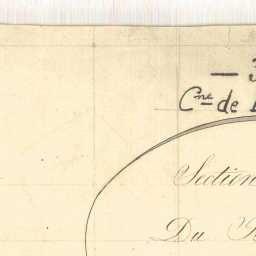 — 3
Cne de
Section
Du